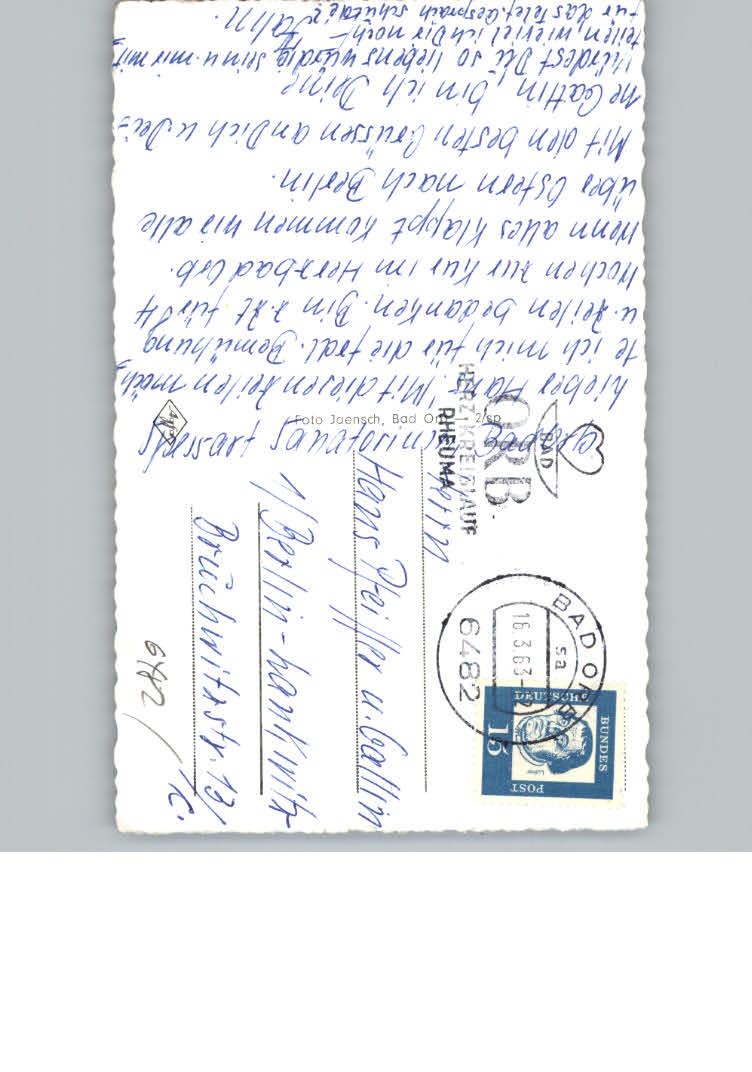 Lieber Hans! Mit diesen Zeilen möch-
te ich mich für die frdl. Bemühung
u. Zeilen bedanken. Bin z. Zt. für 4
Wochen zur Kur im Herzbad Orb.
Wenn alles klappt kommen wir alle
über Ostern nach Berlin.
Mit den besten Grüssen an Dich u. Dei-
ne Gattin, bin ich Deine
Würdest Du so liebenswürdig sein u. mir mit-
teilen, wieviel ich Dir noch
für das Telef. Gespräch schulde?
Foto Jaensch, Bad Orb 2/sp
Agfa
BAD
ORB
HERZ/KREISLAUF
RHEUMA
BAD ORB
sa
16.3.63
6482
DEUTSCHE
BUNDES
POST
15
Luther
Herrn
Hans Pfeiffer u. Gattin
1/Berlin-Lankwitz
Bruchwitzstr. 13/
6482/